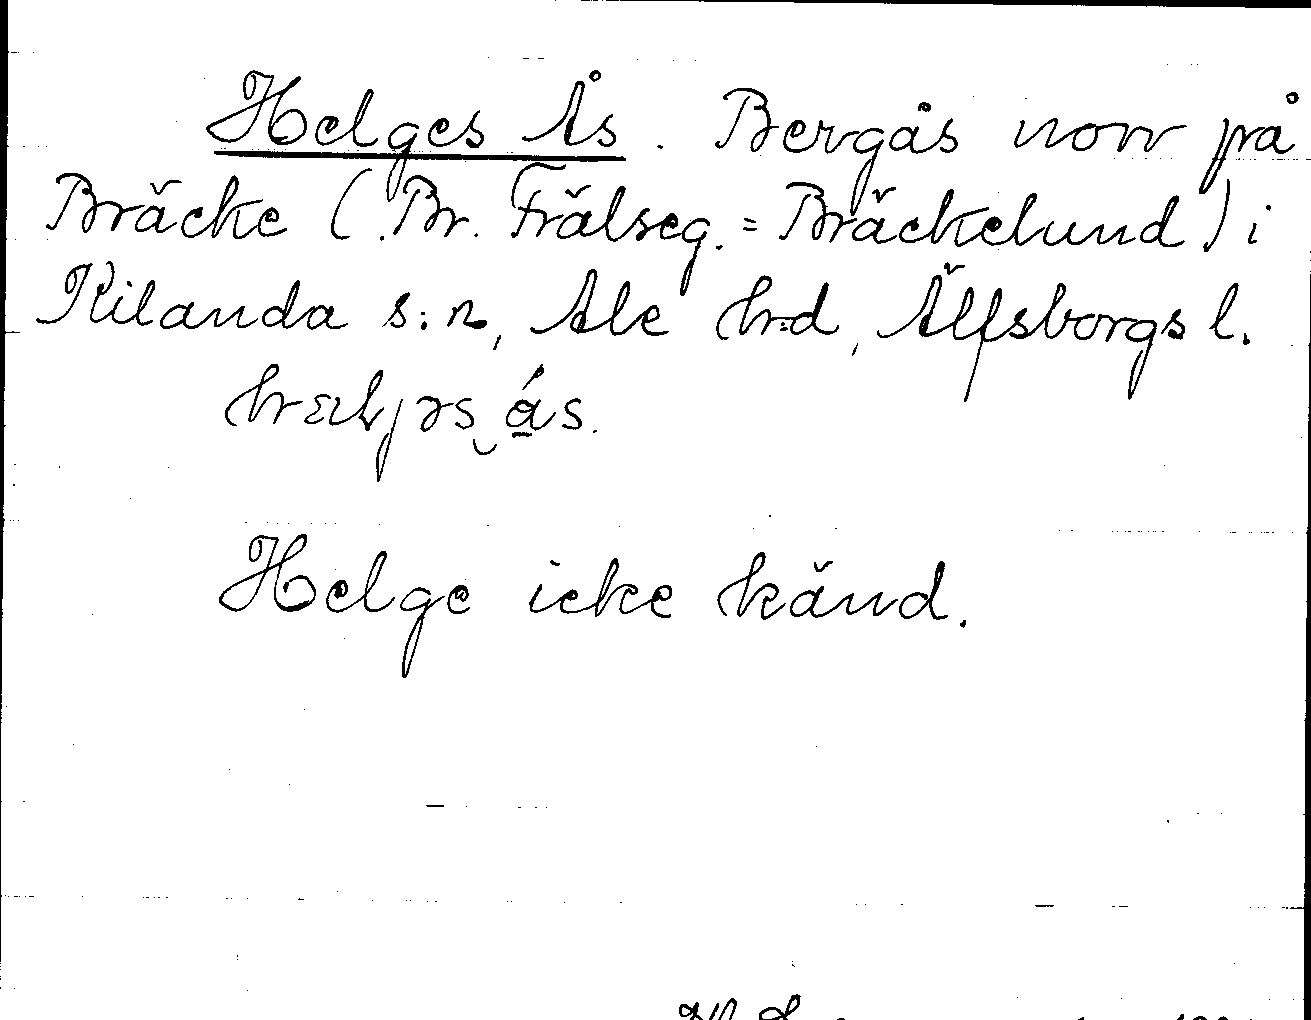 Helges Ås. Bergås norr på
Bräcke (Br. Frälseg. = Bräckelund) i
Kilanda s:n, Ale hrd, Älfsborgs l.
ás.
Helge icke känd.